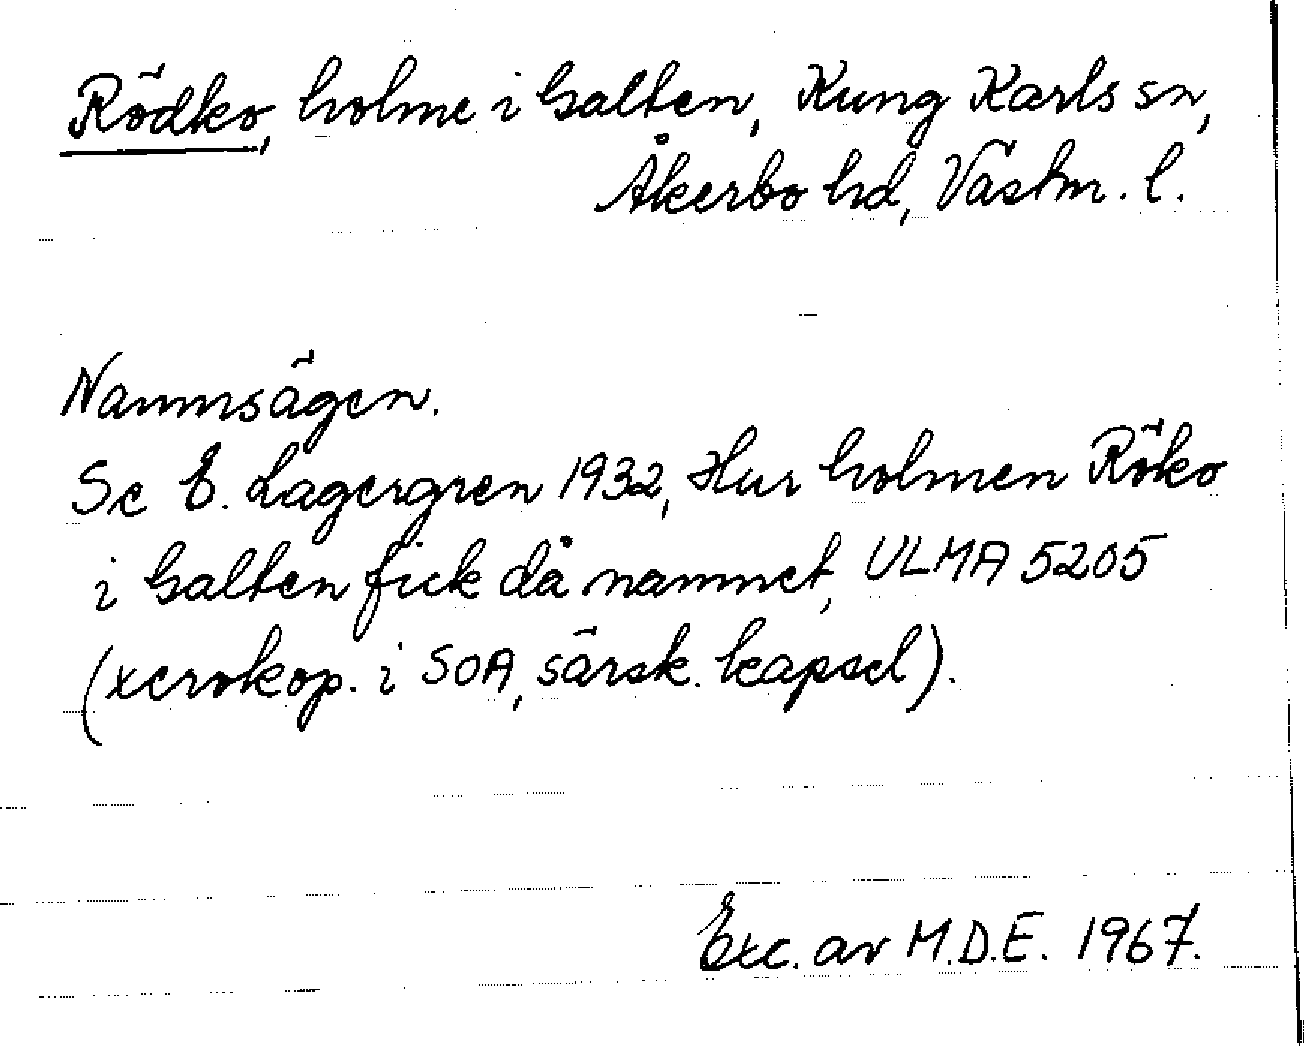 Rödko, holme i Galten, Kung Karls sn,
Åkerbo hd, Västm. l.
Namnsägen.
Se E. Lagergren 1932, Hur holmen Röko
i Galten fick då namnet, ULMA 5205
(xerokop. i SOA, särsk. kapsel).
Exc. av M.D.E. 1967.